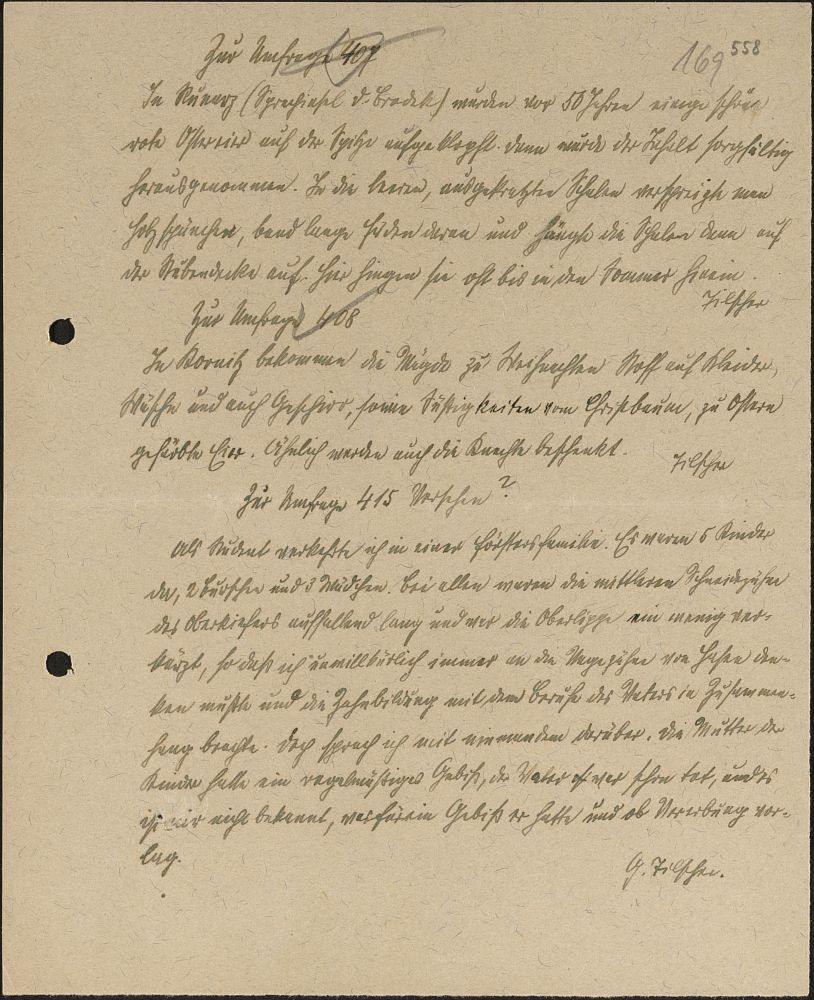 Zur Umfrage 407
169 558
In Runarz (Sprachinsel D. Brodek) wurden vor 50 Jahren einige schöne
rote Ostereier auf der Spitze aufgeklopft. Dann wurde der Inhalt sorgfältig
herausgenommen. In die leeren, ausgekratzten Schalen verspreizte man
Holzspänchen, band lange Fäden daran und hängte die Schalen dann auf
der Stubendecke auf. Hier hingen sie oft bis in den Sommer hinein.
Tilscher
Zur Umfrage 408
In Kornitz bekommen die Mägde zu Weihnachten Stoff auf Kleider,
Wäsche und auch Geschirr, sowie Süßigkeiten vom Christbaum, zu Ostern
gefärbte Eier. Ähnlich werden auch die Knechte beschenkt.
Tilscher
Zur Umfrage 415 Versehen?
Als Student verkehrte ich in einer Försterfamilie. Es waren 5 Kinder
da, 2 Burschen und 3 Mädchen. Bei allen waren die mittleren Schneidezähne
des Oberkiefers auffallend lang und war die Oberlippe ein wenig ver-
kürzt, so daß ich unwillkürlich immer an die Nagezähne von Hasen den-
ken mußte und die Zahnbildung mit dem Berufe des Vaters in Zusammen-
hang brachte. Doch sprach ich mit niemandem darüber. Die Mutter der
Kinder hatte ein regelmäßiges Gebiß, der Vater war schon tot, und es
ist mir nicht bekannt, was für ein Gebiß er hatte und ob Vererbung vor-
lag.
G. Tilscher.